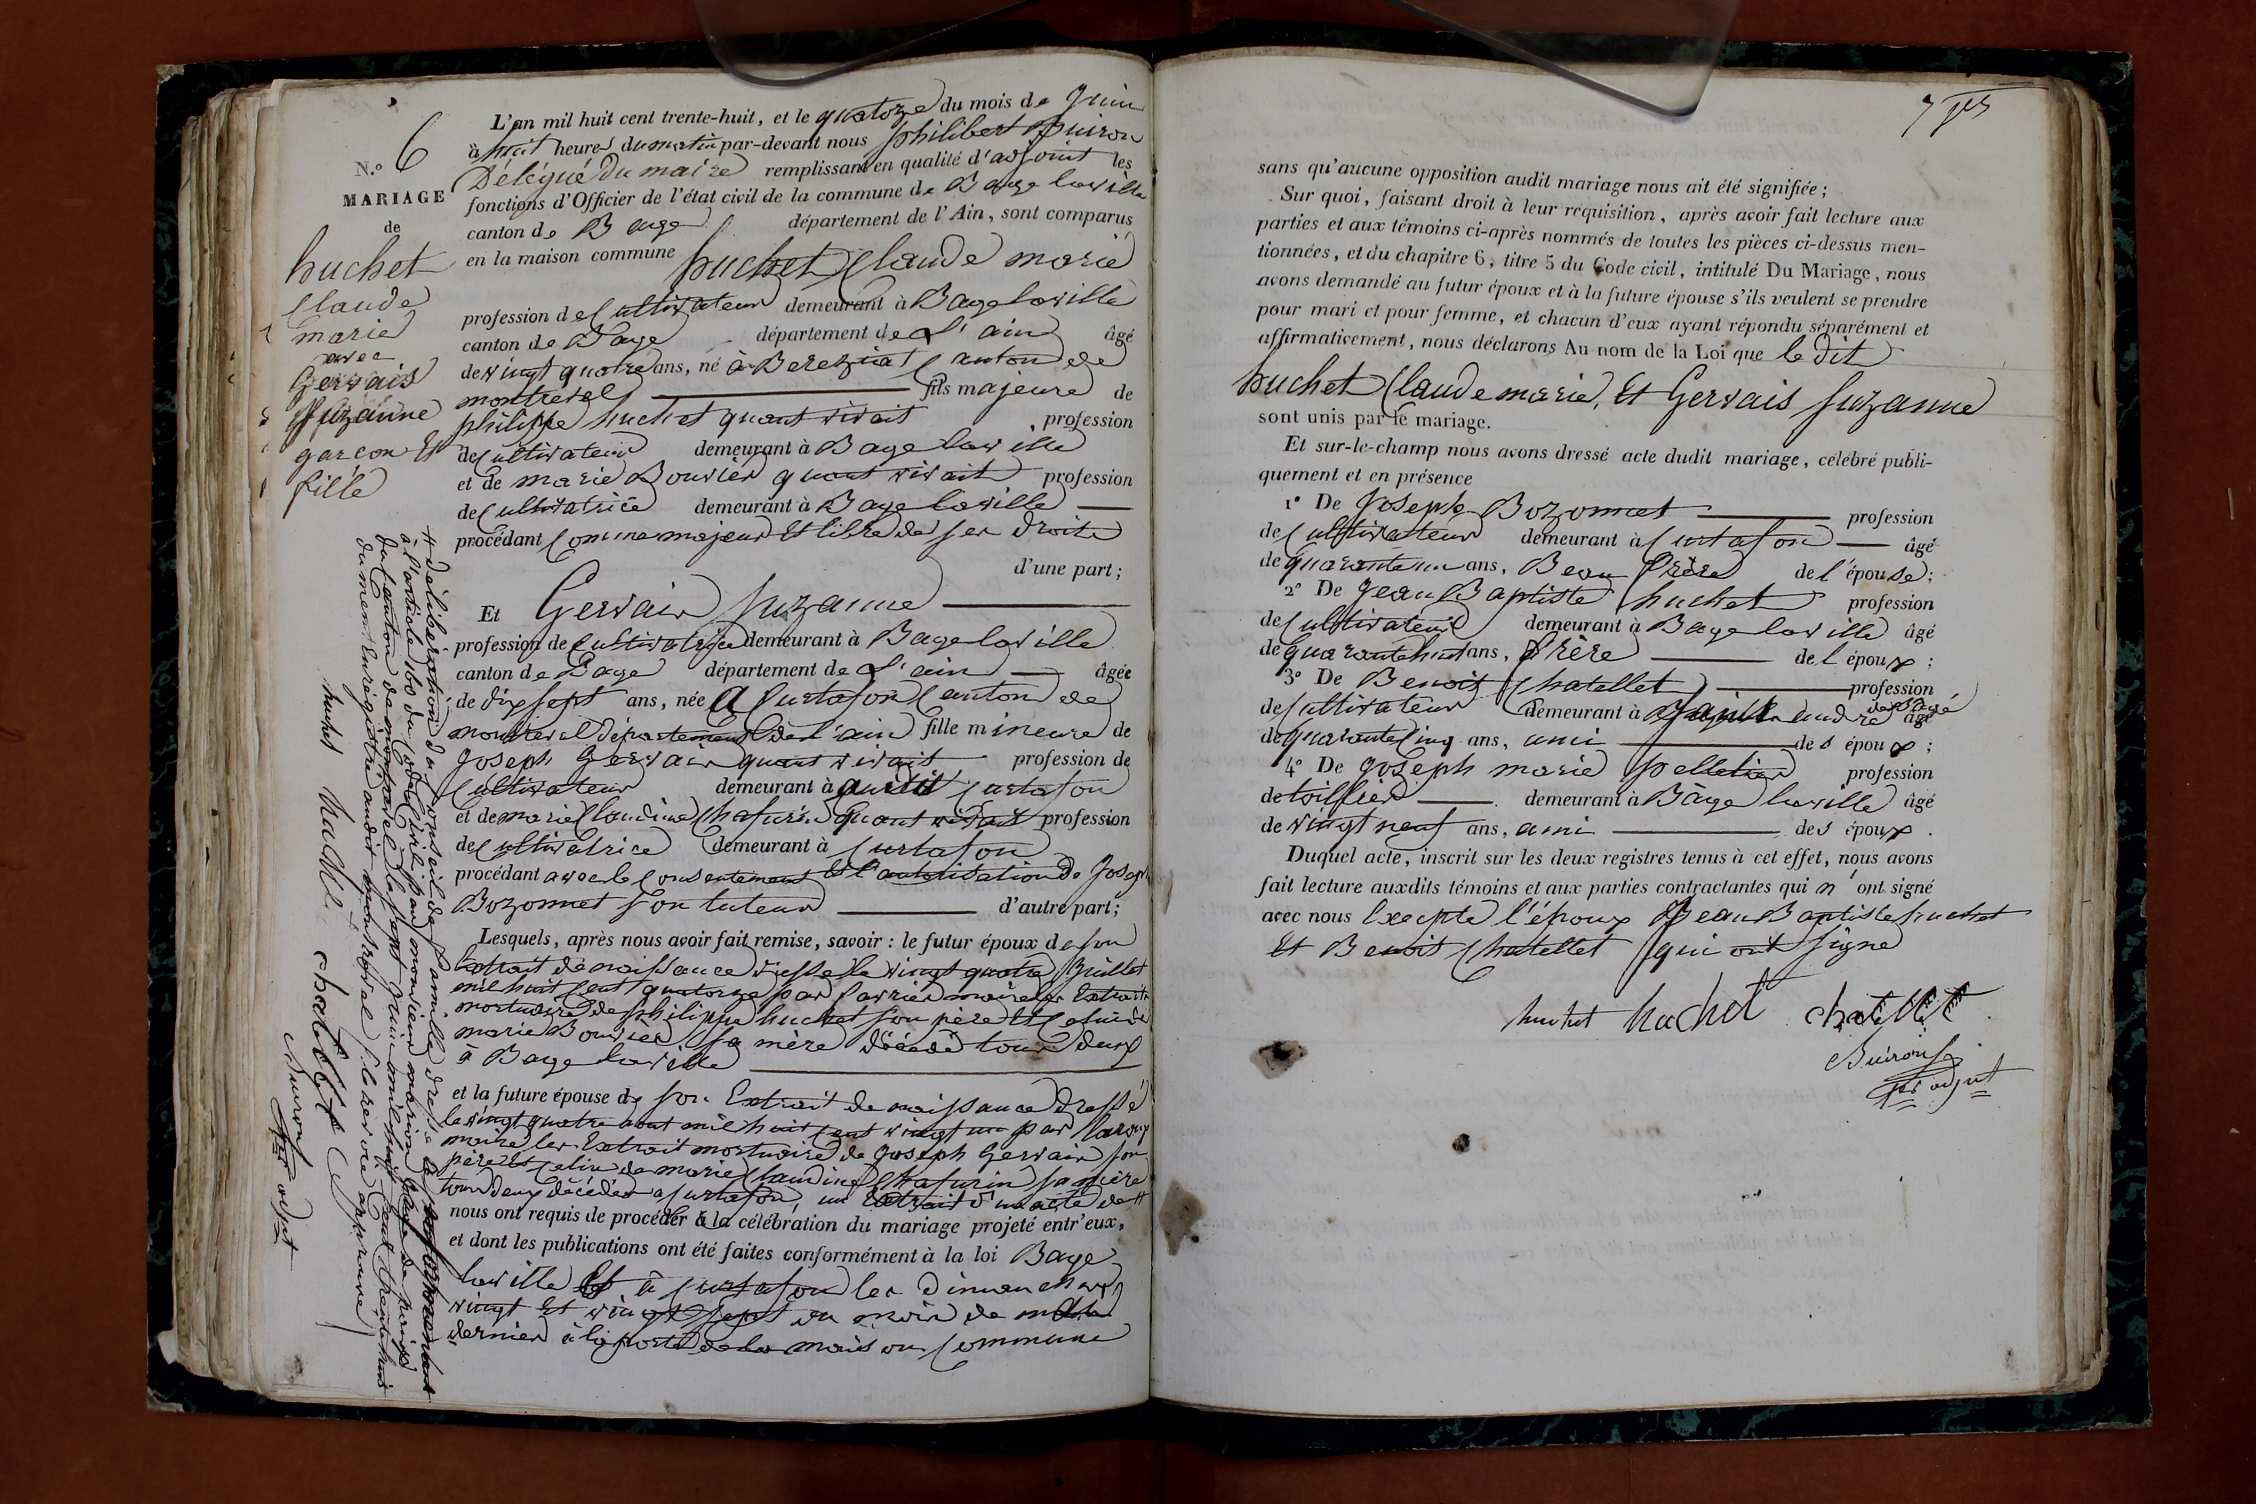 N.° 6
MARIAGE
de
huchet
Claude
marie
avec
Gervais
Suzanne
garcon Et
fille
L'an mil huit cent trente-huit, et le quatorze du mois de Juin
à huit heures du matin par-devant nous philibert Buiron
Délégué Du maire remplissant en qualité d'adjoint les
fonctions d'Officier de l'état civil de la commune de Bage laville
canton de Bage département de l'Ain, sont comparus
en la maison commune huchet Claude marie
profession de Cultivateur demeurant à Bage laville
canton de Bage département de L'ain âgé
de vingt quatre ans, né à Bereziat Canton de
montrevel fils majeure de
philippe huchet quant vivait profession
de Cultivateur demeurant à Bage laville
et de marie Bouvier quant vivait profession
de Cultivatrice demeurant à Bage laville
procédant Comme majeur Et libre de ses droits
d'une part;
Et Gervais Suzanne
profession de Cultivatrice demeurant à Bage laville
canton de Bage département de L'ain âgée
de dix sept ans, née a Curtafon Canton de
montrevel département de l'ain fille mineure de
Joseph Gervais quant vivait profession de
Cultivateur demeurant à audit Curtafon
et de marie Claudine Chafurin quant vivait profession
de Cultivatrice demeurant à Curtafon
procédant avec le Consentement Et l'autorisation De Joseph
Bozonnet Son tuteur d'autre part;
Lesquels, après nous avoir fait remise, savoir : le futur époux de son
Extrait de naissance dressé le vingt quatre Juillet
mil huit Cent quatorze par Carrier maire les Extraits
mortuaire de philippe huchet son père Et Celui de
marie Bouvier Sa mère décédé tous deux
à Bage laville
et la future épouse de son Extrait de naissance Dressé
le vingt quatre aout mil huit Cent vingt un par
maire les Extrait mortuaire de Joseph Gervais son
père Et Celui de marie Claudine Chafurin sa mère
tous deux décédés a Curtafon, un Extrait d'un acte de #
nous ont requis de procéder à la célébration du mariage projeté entr'eux,
et dont les publications ont été faites conformément à la loi Bage
laville Et à Curtafon les Dimanches
vingt Et vingt sept du mois de mai
dernier à la porte de la maison Commune
# délibération du Conseil de famille dressé
à l'article 160 du Code Civil par monsieur marion Juge de paix
du Canton de montrevel le sept Juin mil huit Cent trente huit
dument Enregistré audit montrevel
huchet huchet chatellet
Buiron
adjoint
sans qu'aucune opposition audit mariage nous ait été signifiée;
Sur quoi, faisant droit à leur réquisition, après avoir fait lecture aux
parties et aux témoins ci-après nommés de toutes les pièces ci-dessus men-
tionnées, et du chapitre 6, titre 5 du Code civil, intitulé Du Mariage, nous
avons demandé au futur époux et à la future épouse s'ils veulent se prendre
pour mari et pour femme, et chacun d'eux ayant répondu séparément et
affirmativement, nous déclarons Au nom de la Loi que le dit
huchet Claude marie, Et Gervais Suzanne
sont unis par le mariage.
Et sur-le-champ nous avons dressé acte dudit mariage, célébré publi-
quement et en présence
1° De Joseph Bozonnet profession
de Cultivateur demeurant à Curtafon âgé
de quarante un ans, Beau frère de l'épouse;
2° De Jean Baptiste huchet profession
de Cultivateur demeurant à Bage laville âgé
de quarante huit ans, frère de l'époux;
3° De Benoit Chatellet profession
de Cultivateur demeurant à Saint andré de Bagé âgé
de quarante Cinq ans, ami des époux;
4° De Joseph marie pelletier profession
de toillier demeurant à Bâge laville âgé
de vingt neuf ans, ami des époux.
Duquel acte, inscrit sur les deux registres tenus à cet effet, nous avons
fait lecture auxdits témoins et aux parties contractantes qui n'ont signé
avec nous Excepté l'époux Jean Baptiste huchet
Et Benoit Chatellet qui ont signé
huchet huchet chatellet
Buiron
adjoint